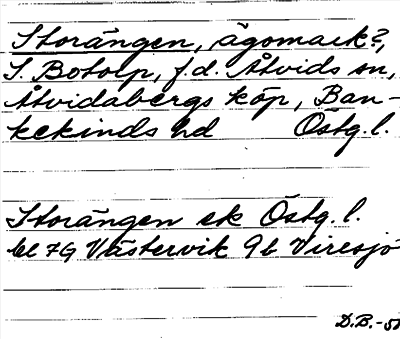 Storängen, ägomark?,
S. Botolp, f.d. Åtvids sn,
Åtvidabergs köp, Ban-
kekinds hd Östg. l.
Storängen ek Östg. l.
bl 7G Västervik 9b Viresjö
D.B.-51